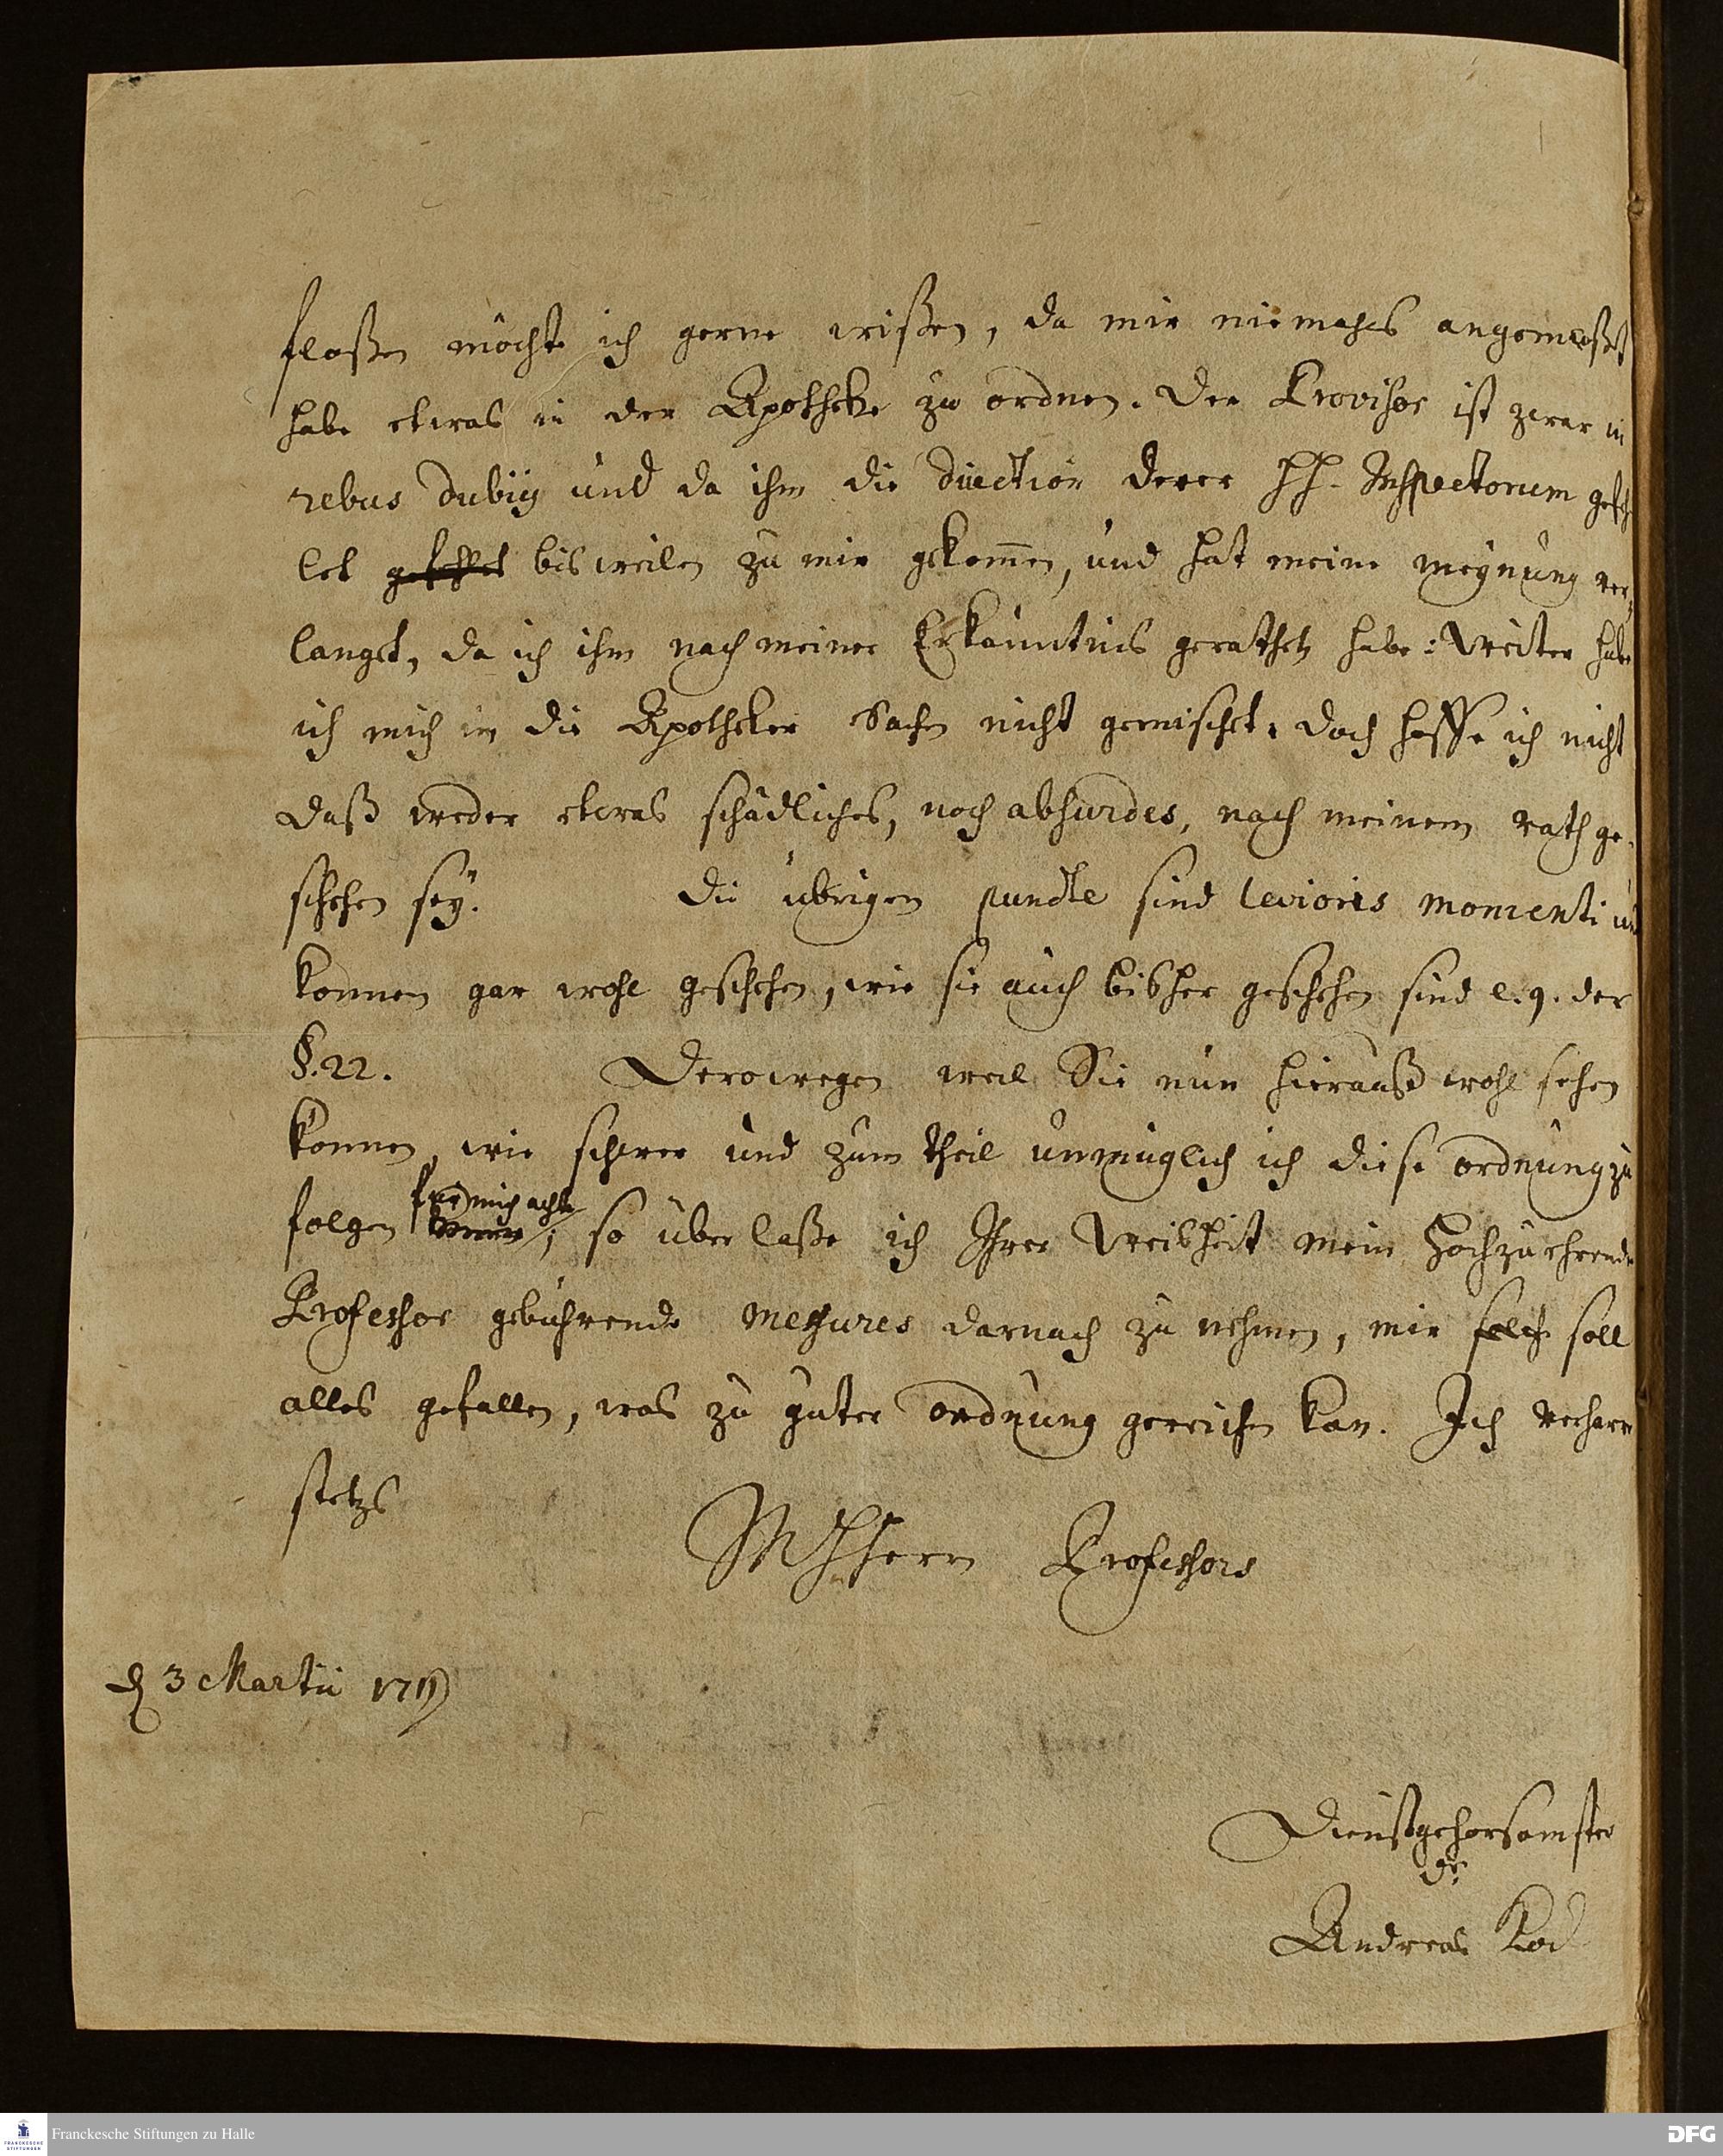 floßen möchte ich gerne wißen, da mir niemahls angemaßet
habe etwas in der Apotheke zu ordnen. Der Provisor ist zwar in
rebus dubiis und da ihm die direction derer HH. Inspectorum gefeh
let gefehlet bisweilen zu mir gekommen, und hat meine meynung ver
langet, da ich ihm nach meiner Erkäntnis gerathen habe: Weiter habe
ich mich in die Apotheker Sachen nicht gemischet. Doch hoffe ich nicht
daß weder etwas schädliches, noch absurdes, nach meinem rath ge-
schehen sey. Die übrigen puncte sind levioris momenti und
können gar wohl geschehen, wie sie auch bißher geschehen sind e. g. der
§. 22. Derowegen weil Sie nun hierauß wohl sehen
können, wie schwer und zum theil unmüglich ich diese ordnung zu
für mich achte
folgen könne; so überlaße ich Ihrer Weißheit mein Hochzuehrender
Professor gebührende mesures darnach zu nehmen, mir solch soll
alles gefallen, was zu guter ordnung gereichen kan. Ich verharre
stetzs
MhHerrn Professors
d 3 Martii 1711
Dienstgehorsamster
dr
Andreas
Franckesche Stiftungen zu Halle
FRANCKESCHE STIFTUNGEN
DFG